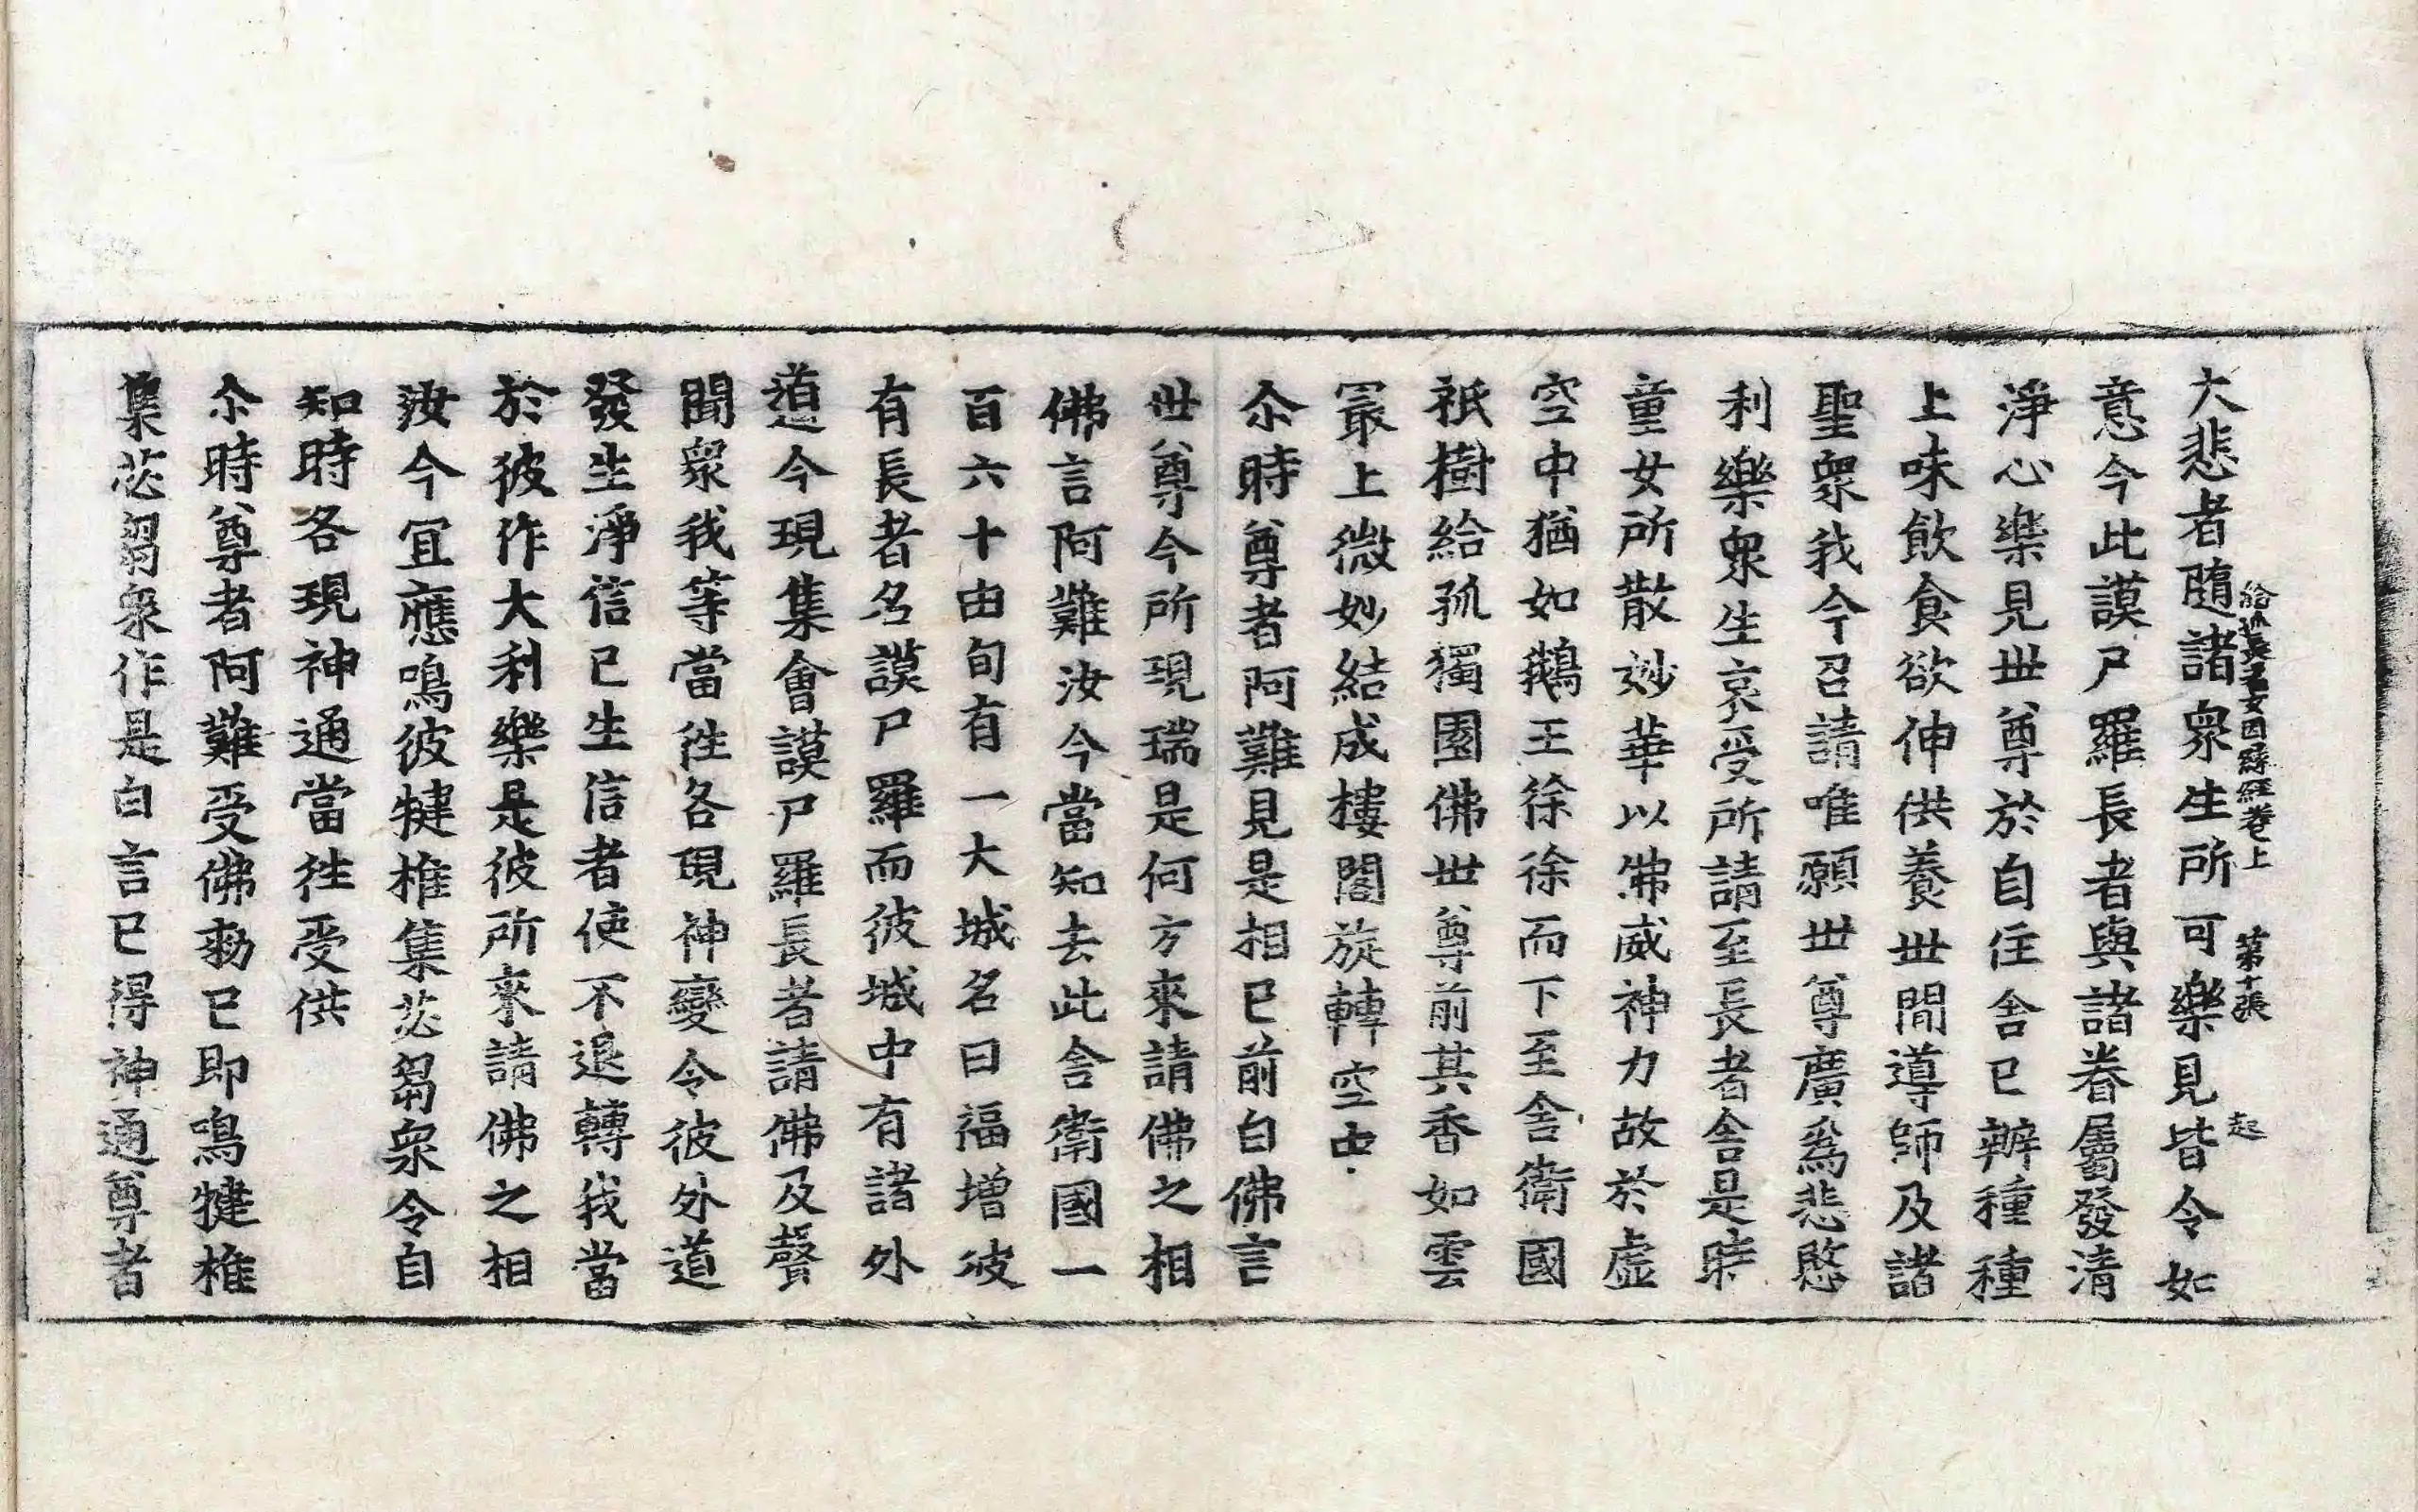 大悲者隨諸衆生所可樂見皆令如
給孤長者女因緣經卷上 第十張 起
意今此謨尸羅長者與諸眷屬發清
淨心樂見世尊於自住舍已辦種種
上味飲食欲伸供養世間導師及諸
聖衆我今召請唯願世尊廣爲悲愍
利樂衆生哀受所請至長者舎是時
童女所散妙華以佛威神力故於虛
空中猶如鵝王徐徐而下至舎衛國
祇樹給孤獨園佛世尊前其香如雲
㝡上微妙結成樓閣旋轉空中
尒時尊者阿難見是相已前白佛言
世尊今所現瑞是何方來請佛之相
佛言阿難汝今當知去此舎衛國一
百六十由旬有一大城名曰福增彼
有長者名謨尸羅而彼城中有諸外
道今現集會謨尸羅長者請佛及聲
聞衆我等當往各現神變令彼外道
發生淨信已生信者使不退轉我當
於彼作大利樂是彼所來請佛之相
汝今宜應鳴彼犍椎集苾芻衆令自
知時各現神通當往受供
尒時尊者阿難受佛勑已即鳴犍椎
集苾芻衆作是白言已得神通尊者